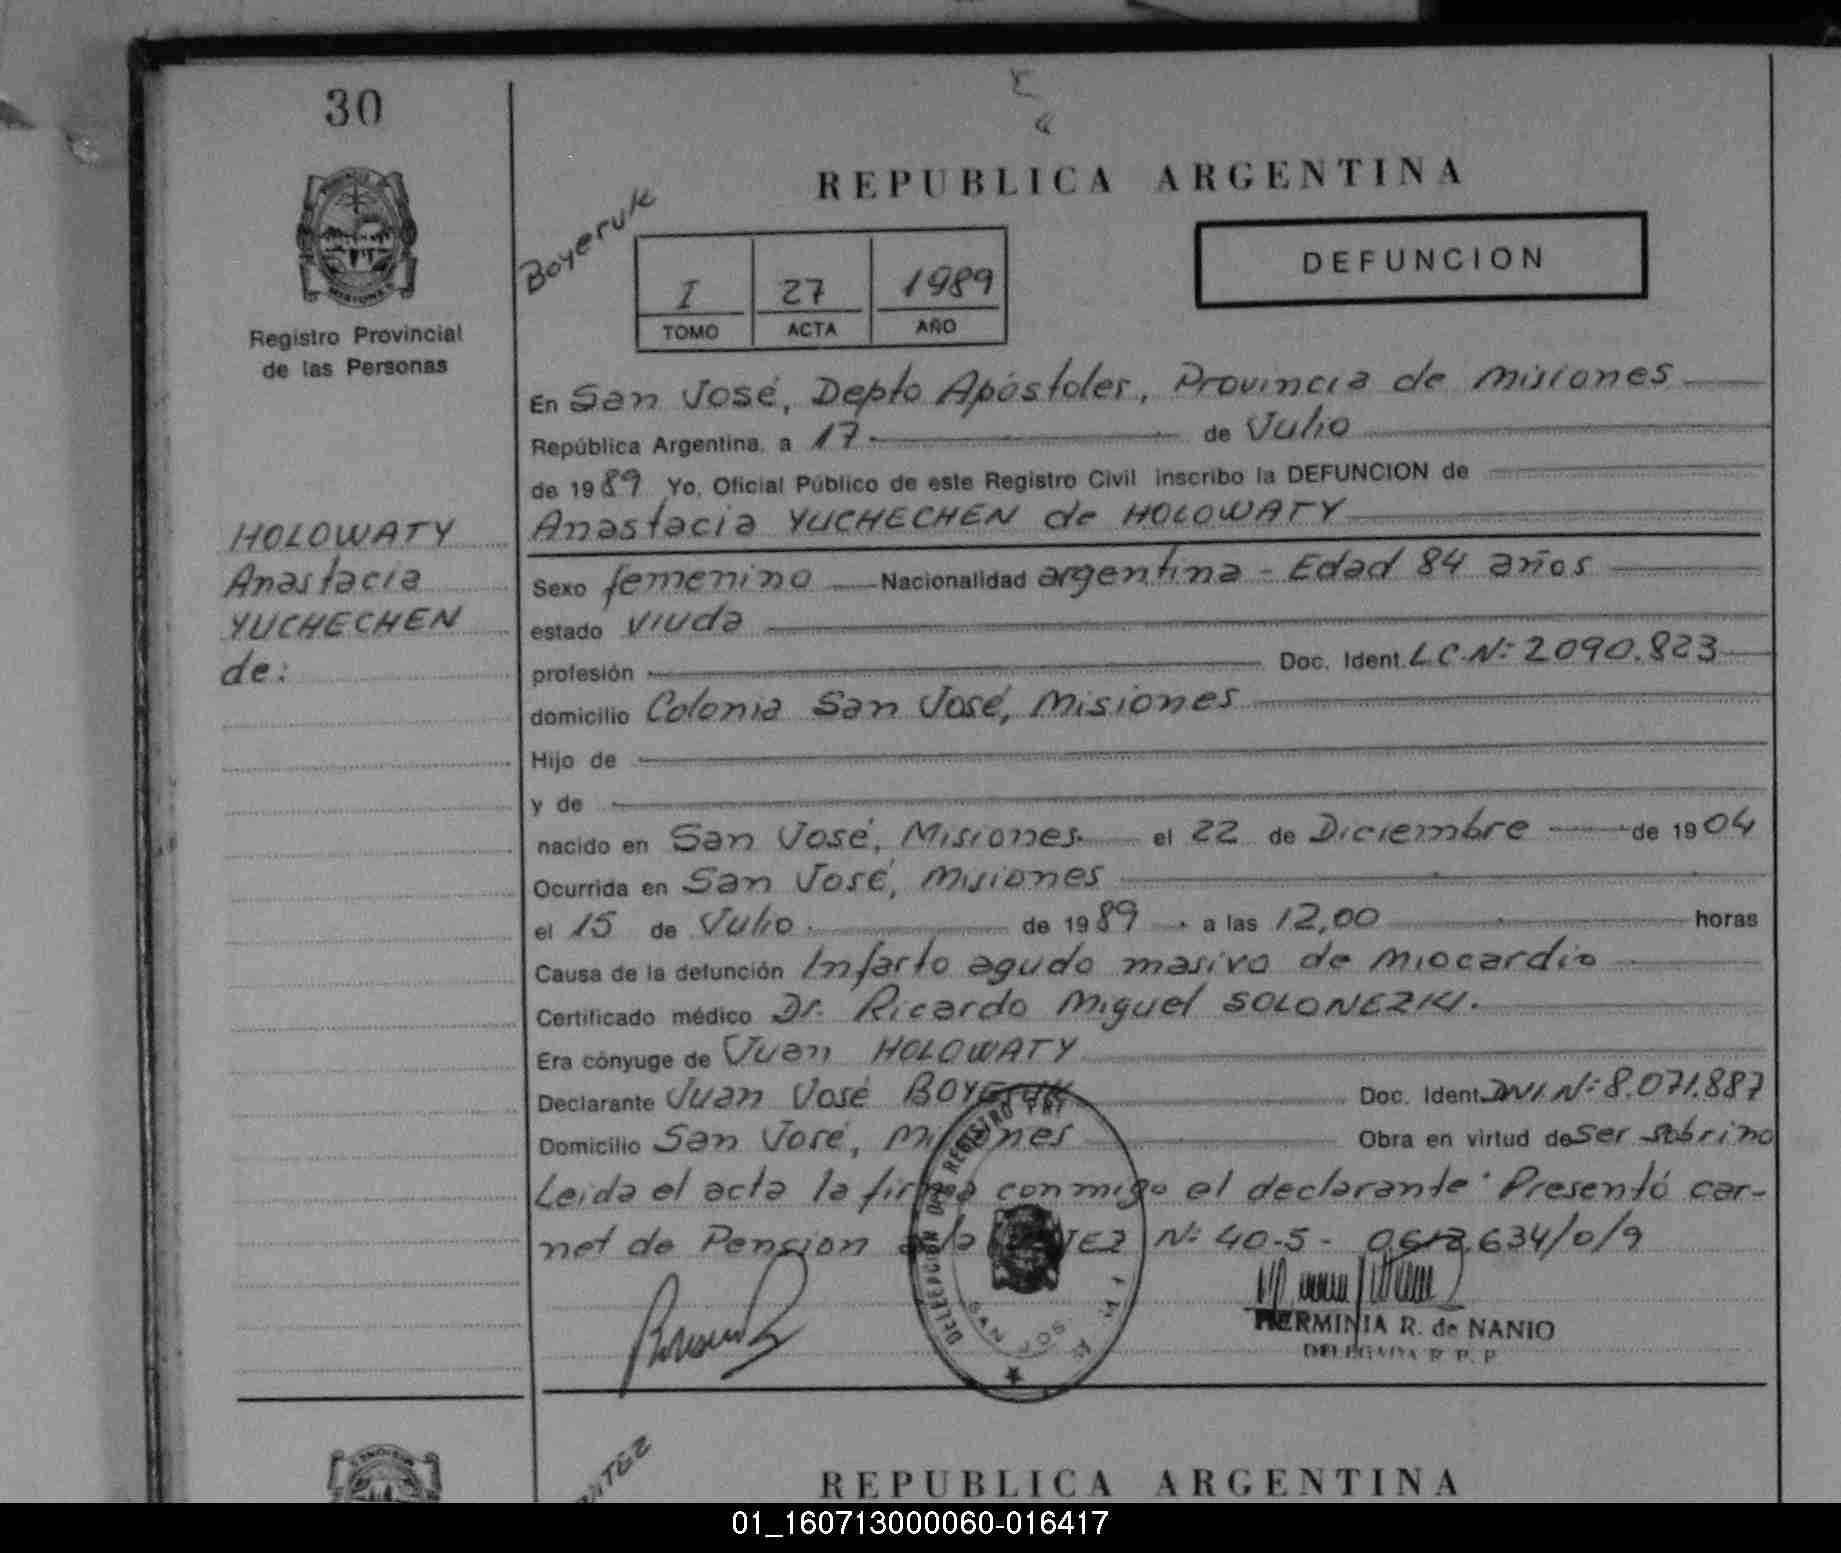 30
REPUBLICA ARGENTINA
Boyeruk
I 27 1989
TOMO ACTA AÑO
DEFUNCION
MISIONES
Registro Provincial
de las Personas
En San José, Depto Apóstoles, Provincia de Misiones
República Argentina, a 17 de Julio
de 1989 Yo, Oficial Público de este Registro Civil inscribo la DEFUNCION de
HOLOWATY
Anastacia
YUCHECHEN
de:
Anastacia YUCHECHEN de HOLOWATY
Sexo femenino Nacionalidad argentina - Edad 84 años
estado viuda
profesión Doc. Ident. L.C.Nº: 2.090.823
domicilio Colonia San José, Misiones
Hijo de
y de
nacido en San José, Misiones el 22 de Diciembre de 1904
Ocurrida en San José, Misiones
el 15 de Julio de 1989 a las 12,00 horas
Causa de la defunción Infarto agudo masivo de miocardio
Certificado médico Dr. Ricardo Miguel SOLONEZKI.
Era cónyuge de Juan HOLOWATY
Declarante Juan José BOYERUK Doc. Ident. DNI Nº: 8.071.887
Domicilio San José, Misiones Obra en virtud de Ser sobrino
Leida el acta la firma conmigo el declarante. Presentó car-
net de Pension a la Nº: 40-5-
DELEGACION DEL REGISTRO
SAN JOSE
HERMINIA R. de NANIO
DELEGADA R. P. P.
REPUBLICA ARGENTINA
01_160713000060-016417